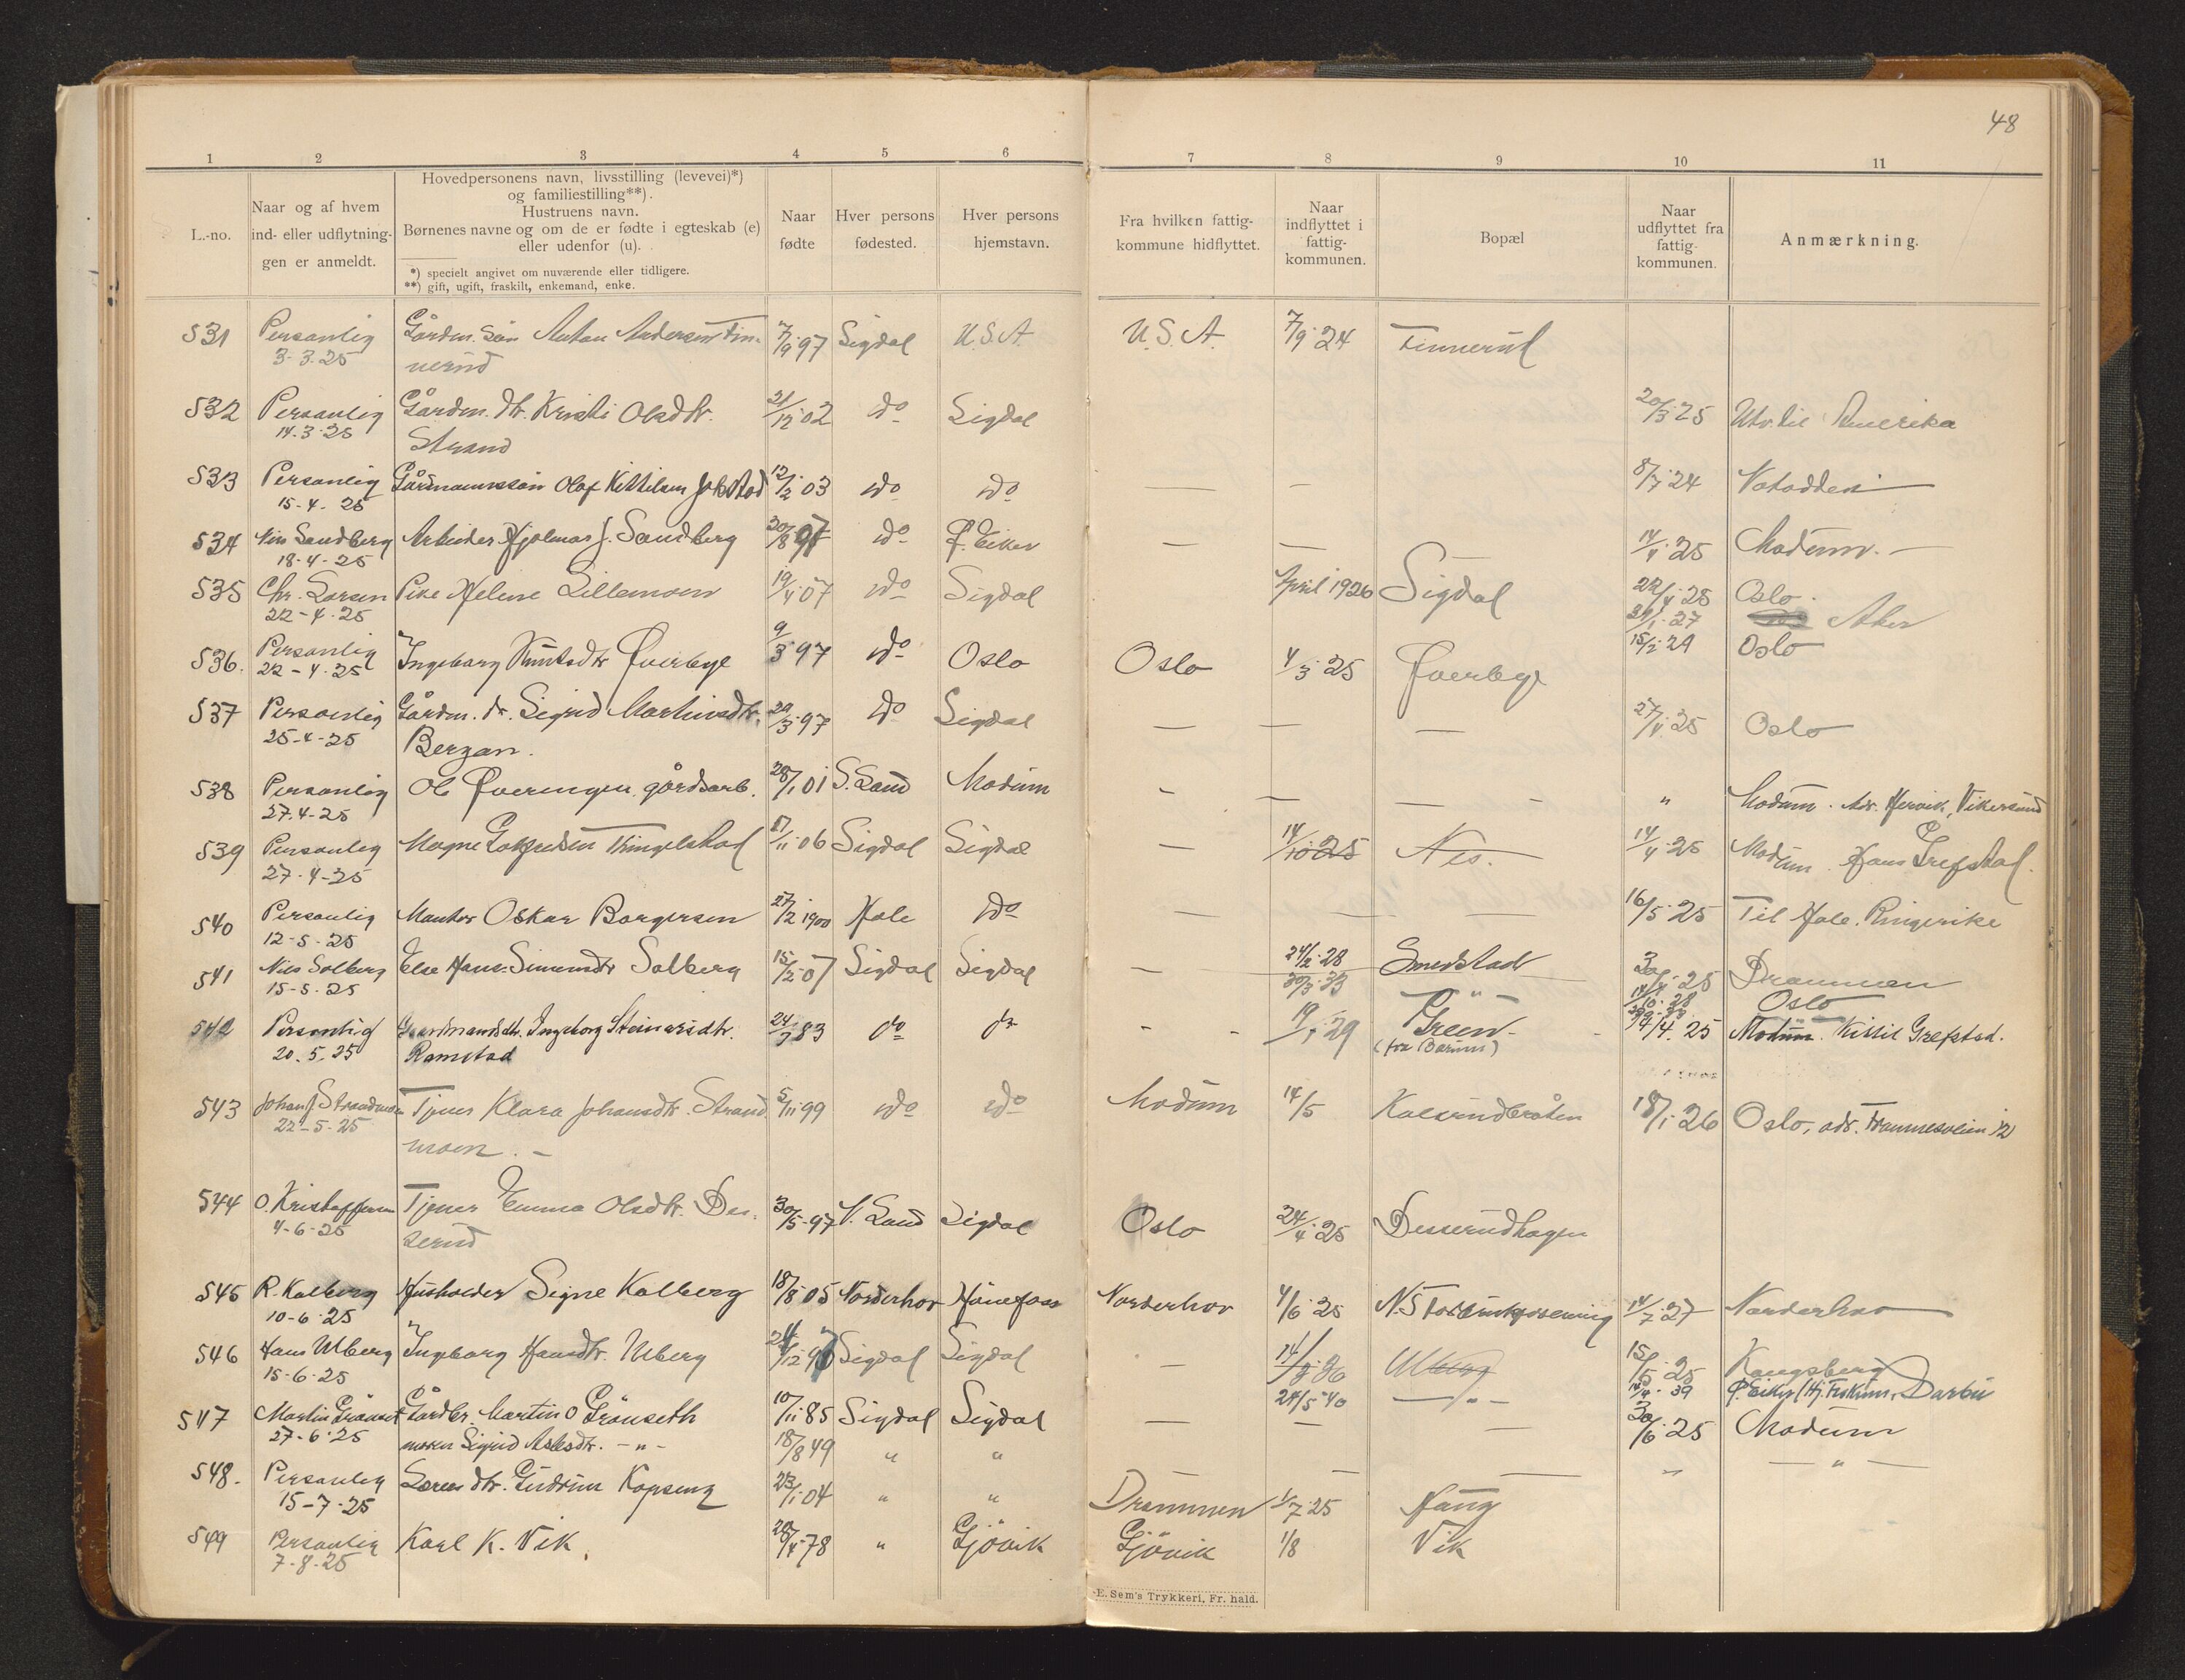 48
1 2 3 4 5 6 7 8 9 10 11
L.-no.
Naar og af hvem
ind- eller udflytnin-
gen er anmeldt.
Hovedpersonens navn, livsstilling (levevei)*)
og familiestilling**).
Hustruens navn.
Børnenes navne og om de er fødte i egteskab (e)
eller udenfor (u).
*) specielt angivet om nuværende eller tidligere.
**) gift, ugift, fraskilt, enkemand, enke.
Naar
fødte
Hver persons
fødested.
Hver persons
hjemstavn.
Fra hvilken fattig-
kommune hidflyttet.
Naar
indflyttet i
fattig-
kommunen.
Bopæl
Naar
udflyttet fra
fattig-
kommunen.
Anmærkning.
531 Personlig Gårdm. søn Anton Andersen Fin- 7/9 97 Sigdal U.S.A. U.S.A. 7/9 24 Finnerud
3-3-25 nerud
532 Personlig Gårdm. dtr. Kristi Olsdtr. 21/12 02 do Sigdal 20/3 25 Utv. til Amerika
14-3-25 Strand
533 Personlig Gårdmannssøn Olaf Kittilsen Jokstad 12/2 03 do do — — 8/7 24 Notodden
15-4-25
534 Nils Sandberg Arbeider Hjalmar J. Sandberg 30/8 97 do Ø. Eiker — — 14/4 25 Modum.
18-4-25
535 Chr. Larsen Pike Helene Lillemoen 19/4 07 do Sigdal April 1926 Sigdal 22/4 25 Oslo.
22-4-25 27 Aker
15/2 29 Oslo
536. Personlig Ingeborg Knutsdtr Øverbye 9/3 97 do Oslo Oslo 4/3 25 Øverbye
22-4-25
537 Personlig Gårdm. dr. Sigrid Martinsdtr. 29/3 97 do Sigdal — — — 27/4 25 Oslo
25-4-25 Bergan.
538 Personlig Ole Øveringen gårdsarb. 28/1 01 S. Land Modum - — — " Modum. Adr. Hervik, Vikersund
27.4-25
539 Personlig Magne Gotfredsen Tingelstad 17/11 06 Sigdal Sigdal — 14/10 25 Nes. 14/4 25 Modum. Hans Grefstad.
27-4-25
540 Personlig Montør Oskar Borgersen 27/2 1900 Hole do — — — 16/5 25 Til Hole. Ringerike
12-5-25
541 Nils Solberg Else Hans. Simensdtr Solberg 15/2 07 Sigdal Sigdal — 24/2 28 Smedstad 25 Drammen
15-5-25 30/3 33 — " — 28 Oslo
542 Personlig Gaardmandsdtr. Ingeborg Steinarsdtr. 24/7 83 do do - - 19/1 29 Green 14/4. 25 Modum. Kittil Grefstad.
20.5.25 Ramstad (fra Bærum)
543 Johan J Strandmoen Tjener Klara Johansdtr. Strand 5/11 99 do do Modum 14/5 Kolsrudbråten 18/1 26 Oslo, adr. Frannesveien 12
22-5-25 moen. —
544 O. Kristoffersen Tjener Emma Olsdtr. Des- 30/5-97 V. Land Sigdal Oslo 24/4 25 Desserudhagen
4-6-25 serud
545 R. Kolberg Husholder Signe Kolberg 18/8 05 Norderhov Hønefoss Norderhov 4/6 25 14/7 27 Norderhov
10-6-25
546 Hans Ulberg Ingeborg Hansdtr. Ulberg Sigdal Sigdal — Ulberg 15/5 25 Kongsberg
15-6-25 24/5 40 — " — 39 Ø. Eiker (Hj. Fiskum, Darbu
547 Martin Grønset Gårdbr. Martin O Grønseth 10/11 85 Sigdal Sigdal — — — 30/6 25 Modum
27-6-25 moren Sigrid Aslesdtr. — " — 18/8 49 " " — — — " — " —
548. Personlig Lærer dtr. Gudrun Kopseng 23/1 04 " " Drammen 1/7 25 Haug
15-7-25
549 Personlig Karl K. Vik. 20/4 78 " Gjøvik Gjøvik 1/8 Vik
7-8-25
E. Sem's Trykkeri, Fr. hald.